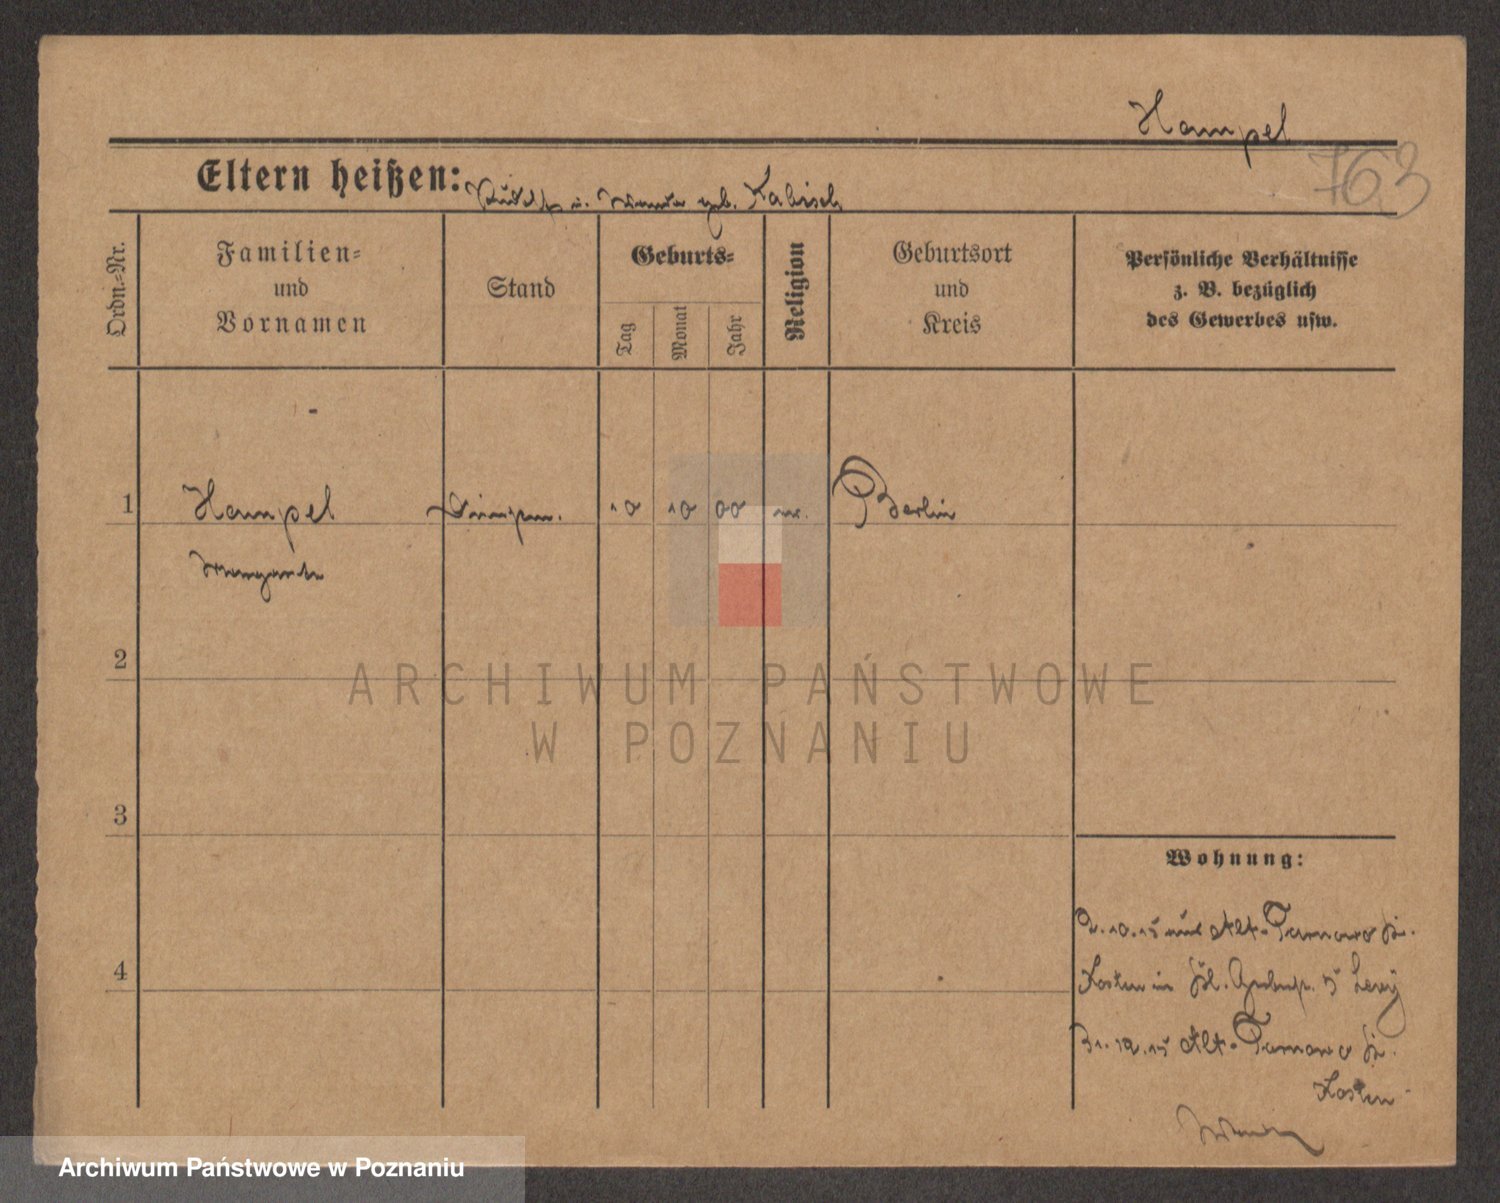 Hampel
763
Eltern heißen: Rudolf u. Minna geb. Kabisch
Ordn.-Nr.
Familien-
und
Vornamen
Stand
Geburts-
Tag
Monat
Jahr
Religion
Geburtsort
und
Kreis
Persönliche Verhältnisse
z. B. bezüglich
des Gewerbes usw.
1 Hampel 10 10 00 Berlin
Margarete
2
3
4
Wohnung:
2.10.15 Alt-Tarnowo Kr.
Kosten in 5 Levy
31.12.15 Alt-Tarnowo Kr.
Kosten
ARCHIWUM PAŃSTWOWE
W POZNANIU
Archiwum Państwowe w Poznaniu